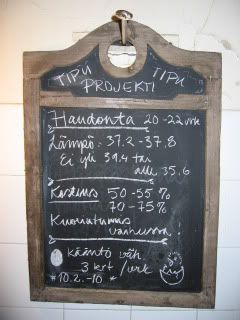 TIPU TIPU
PROJEKTI
Haudonta 20-22vrk
Lämpö: 37.2-37.8
Ei yli 39.4 tai
alle 35.6
Kosteus 50-55 %
70-75%
Kuoriutumis
vaiheessa!
Kääntö väh.
3 krt/vrk
*10.2.-10*